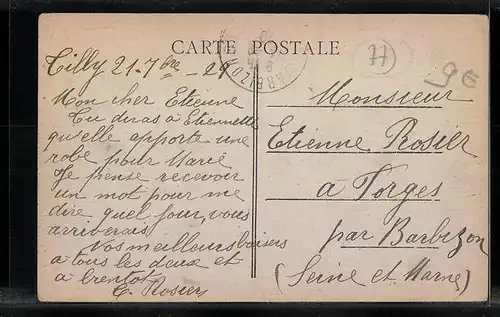 CARTE POSTALE
BARBIZON
77
9€
Tilly 21-7bre-29
Mon cher Etienne
Tu diras a Etiennette
qu'elle apporte une
robe pour Marie
Je pense recevoir
un mot pour me
dire quel jour, vous
arriverais
Vos meilleurs baisers
a tous les deux et
a brentot
E. Rosier
Monsieur
Etienne Rosier
a Forges
par Barbizon
(Seine et Marne)